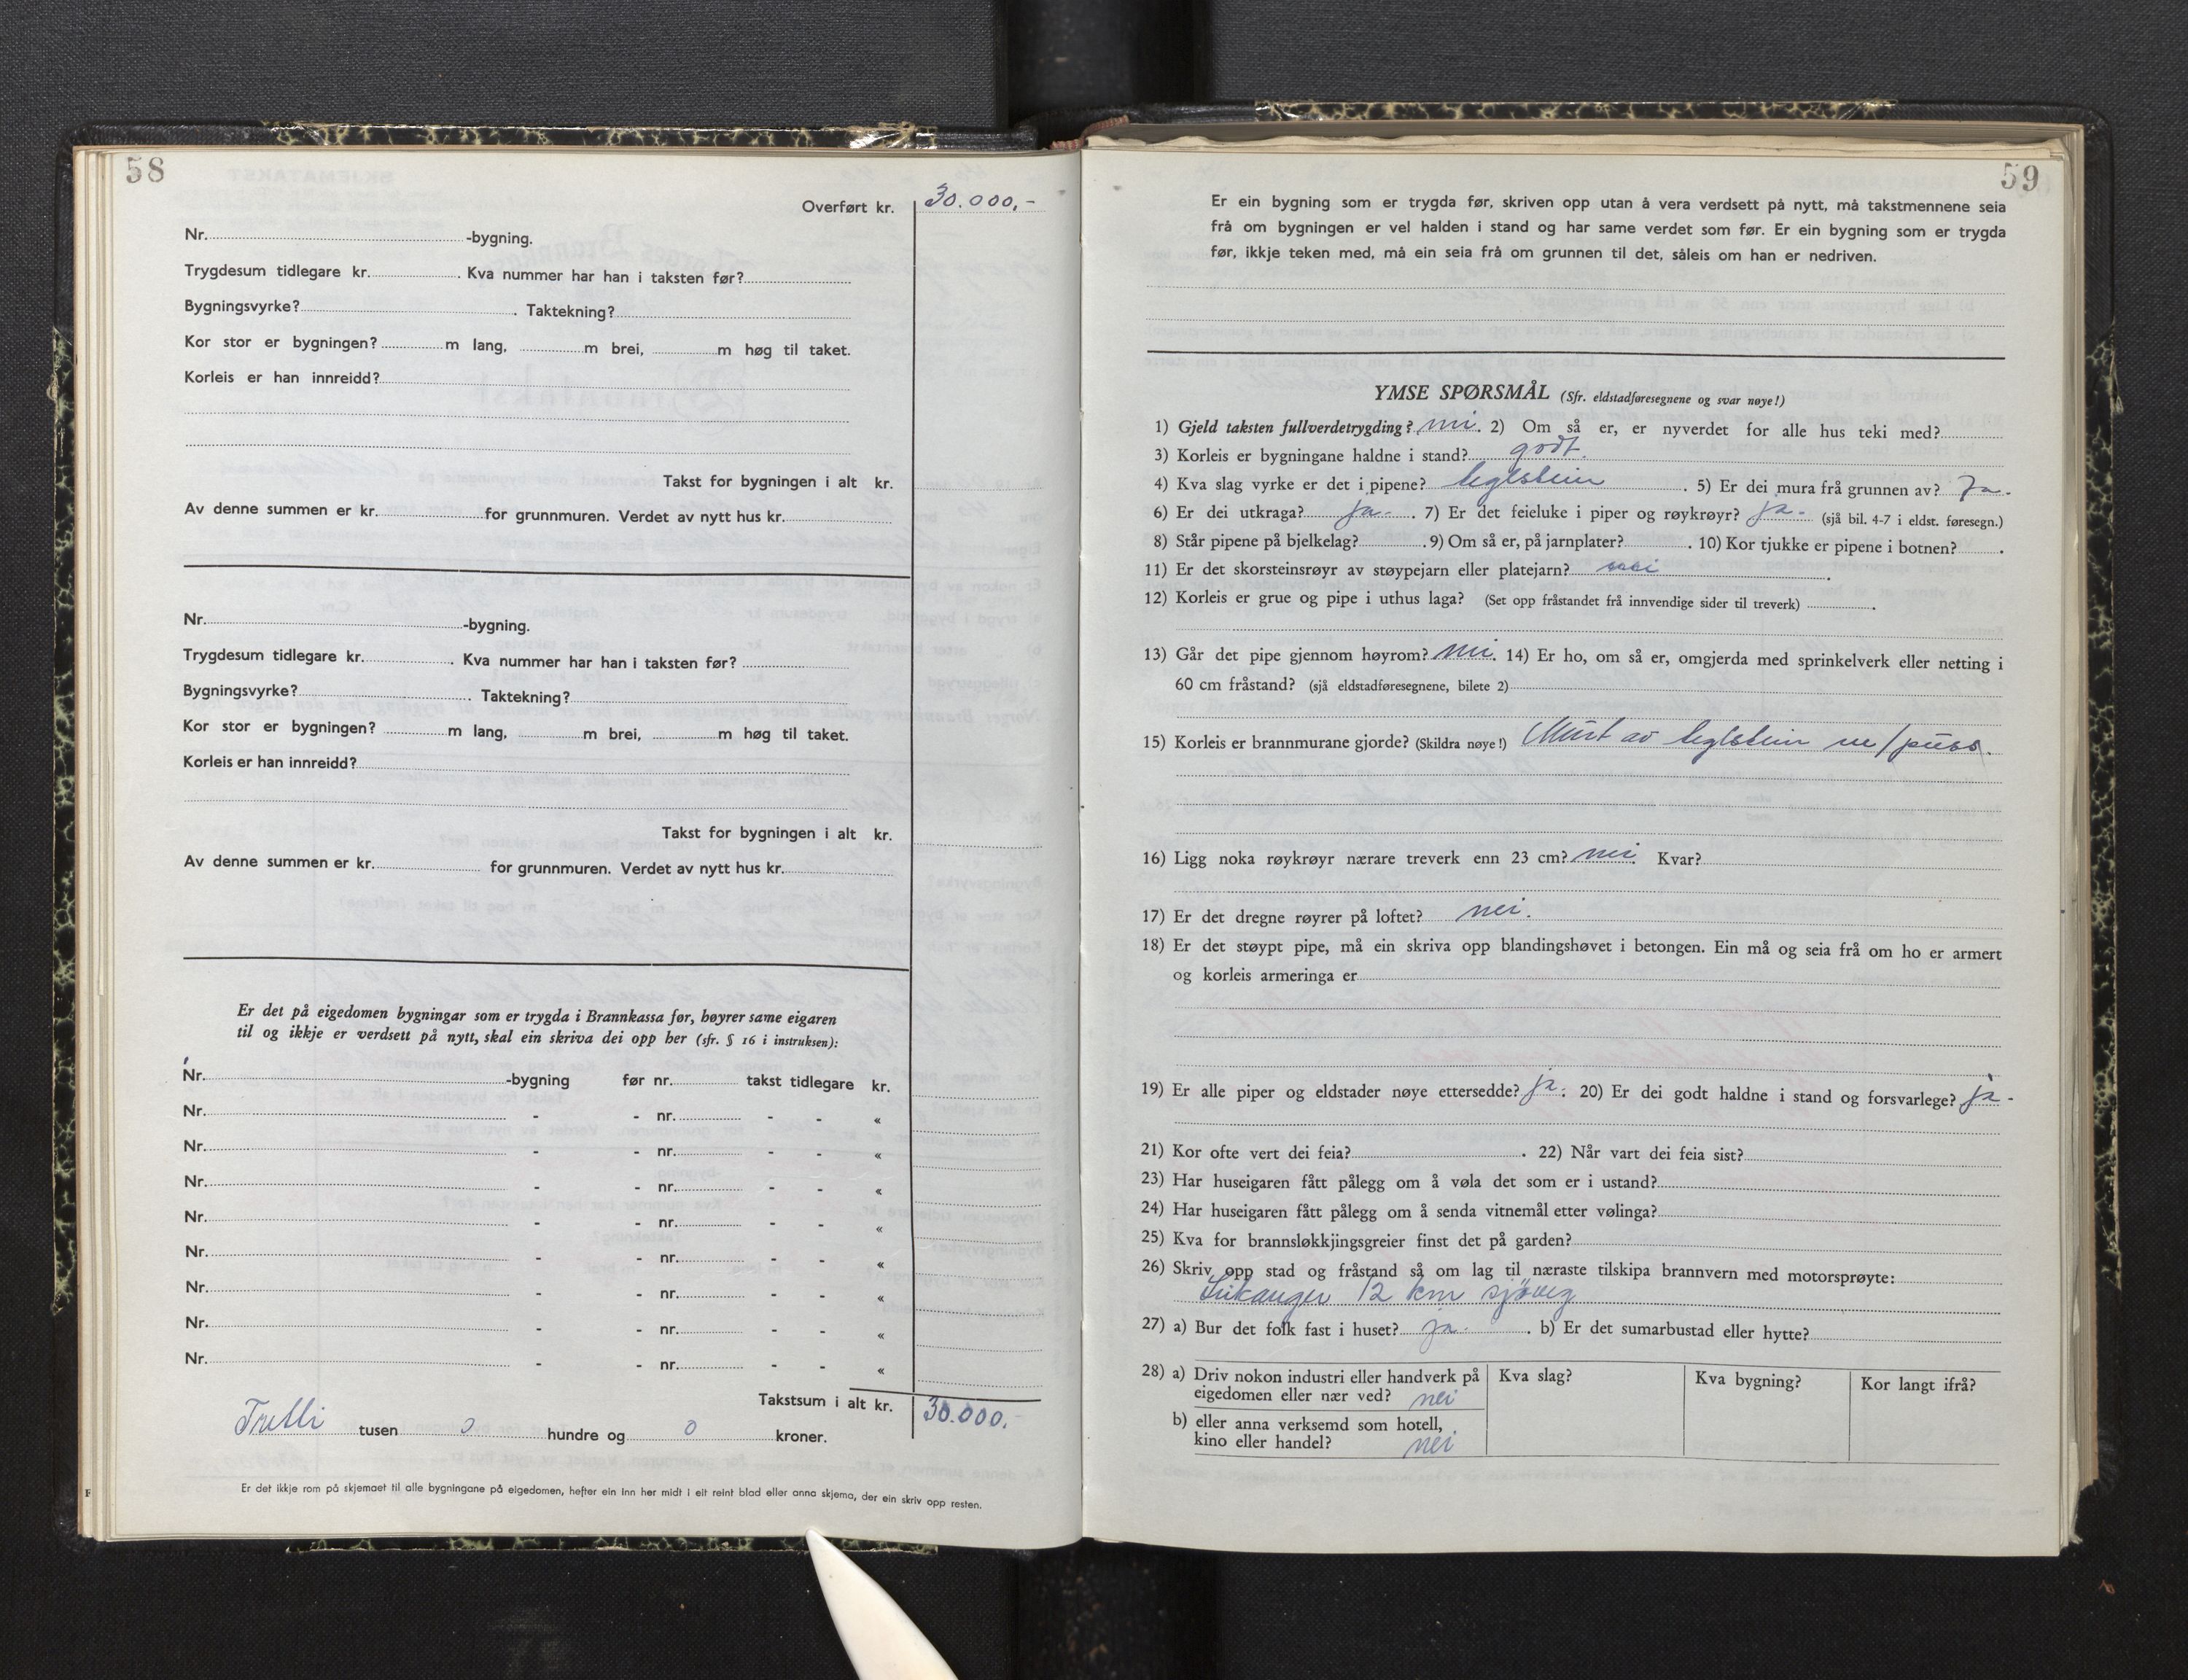 58
Overført kr. 30.000,-
Nr. -bygning.
Trygdesum tidlegare kr. . Kva nummer har han i taksten før?
Bygningsvyrke? . Taktekning?
Kor stor er bygningen? m lang, m brei, m høg til taket.
Korleis er han innreidd?
Takst for bygningen i alt kr.
Av denne summen er kr. for grunnmuren. Verdet av nytt hus kr.
Nr. -bygning.
Trygdesum tidlegare kr. . Kva nummer har han i taksten før?
Bygningsvyrke? . Taktekning?
Kor stor er bygningen? m lang, m brei, m høg til taket.
Korleis er han innreidd?
Takst for bygningen i alt kr.
Av denne summen er kr. for grunnmuren. Verdet av nytt hus kr.
Er det på eigedomen bygningar som er trygda i Brannkassa før, høyrer same eigaren
til og ikkje er verdsett på nytt, skal ein skriva dei opp her (sfr. § 16 i instruksen):
Nr. -bygning før nr. takst tidlegare kr.
Nr. - - nr. - - «
Nr. - - nr. - - «
Nr. - - nr. - - «
Nr. - - nr. - - «
Nr. - - nr. - - «
Nr. - - nr. - - «
Nr. - - nr. - - «
Nr. - - nr. - - «
Takstsum i alt kr. 30.000.-
Tretti tusen 0 hundre og 0 kroner.
Er det ikkje rom på skjemaet til alle bygningane på eigedomen, hefter ein inn her midt i eit reint blad eller anna skjema, der ein skriv opp resten.
F
59
Er ein bygning som er trygda før, skriven opp utan å vera verdsett på nytt, må takstmennene seia
frå om bygningen er vel halden i stand og har same verdet som før. Er ein bygning som er trygda
før, ikkje teken med, må ein seia frå om grunnen til det, såleis om han er nedriven.
YMSE SPØRSMÅL (Sfr. eldstadføresegnene og svar nøye!)
1) Gjeld taksten fullverdetrygding? nei. 2) Om så er, er nyverdet for alle hus teki med?
3) Korleis er bygningane haldne i stand? godt.
4) Kva slag vyrke er det i pipene? teglstein . 5) Er dei mura frå grunnen av? Ja.
6) Er dei utkraga? ja- . 7) Er det feieluke i piper og røykrøyr? ja- (sjå bil. 4-7 i eldst. føresegn.)
8) Står pipene på bjelkelag? . 9) Om så er, på jarnplater? . 10) Kor tjukke er pipene i botnen? .
11) Er det skorsteinsrøyr av støypejarn eller platejarn? nei .
12) Korleis er grue og pipe i uthus laga? (Set opp fråstandet frå innvendige sider til treverk) .
13) Går det pipe gjennom høyrom? nei. 14) Er ho, om så er, omgjerda med sprinkelverk eller netting i
60 cm fråstand? (sjå eldstadføresegnene, bilete 2)
15) Korleis er brannmurane gjorde? (Skildra nøye!) Murt av teglstein m/puss.
16) Ligg noka røykrøyr nærare treverk enn 23 cm? nei. Kvar?
17) Er det dregne røyrer på loftet? nei.
18) Er det støypt pipe, må ein skriva opp blandingshøvet i betongen. Ein må og seia frå om ho er armert
og korleis armeringa er
19) Er alle piper og eldstader nøye ettersedde? ja. 20) Er dei godt haldne i stand og forsvarlege? ja-
21) Kor ofte vert dei feia? . 22) Når vart dei feia sist?
23) Har huseigaren fått pålegg om å vøla det som er i ustand?
24) Har huseigaren fått pålegg om å senda vitnemål etter vølinga?
25) Kva for brannsløkkjingsgreier finst det på garden?
26) Skriv opp stad og fråstand så om lag til næraste tilskipa brannvern med motorsprøyte:
Leikanger 12 km sjöveg
27) a) Bur det folk fast i huset? ja. . b) Er det sumarbustad eller hytte?
28) a) Driv nokon industri eller handverk på Kva slag? Kva bygning? Kor langt ifrå?
eigedomen eller nær ved? nei
b) eller anna verksemd som hotell,
kino eller handel? nei